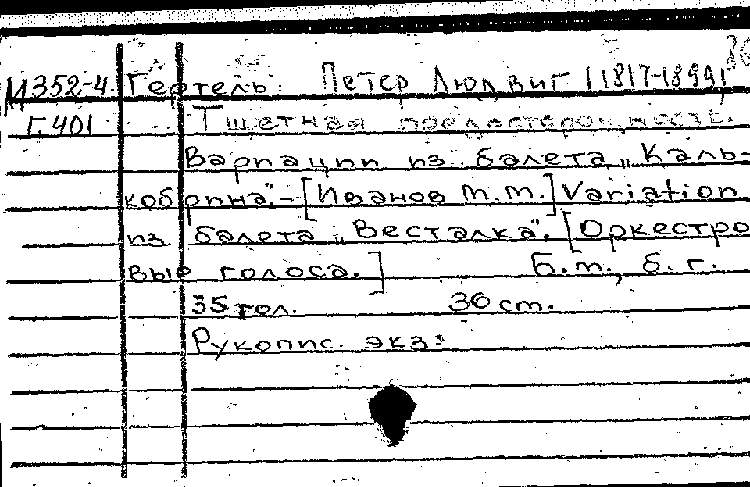 И352-4. Гертель Петер Людвиг (1817-1899)
Г.401 Тщетная предосторожность.
Вариации из балета „Каль-
кобрина".-[Иванов М.М.] Variation
из балета „Весталка". [Оркестро
вые голоса.] Б.м., б.г.
35 гол. 36 ст.
Рукопис. экз: